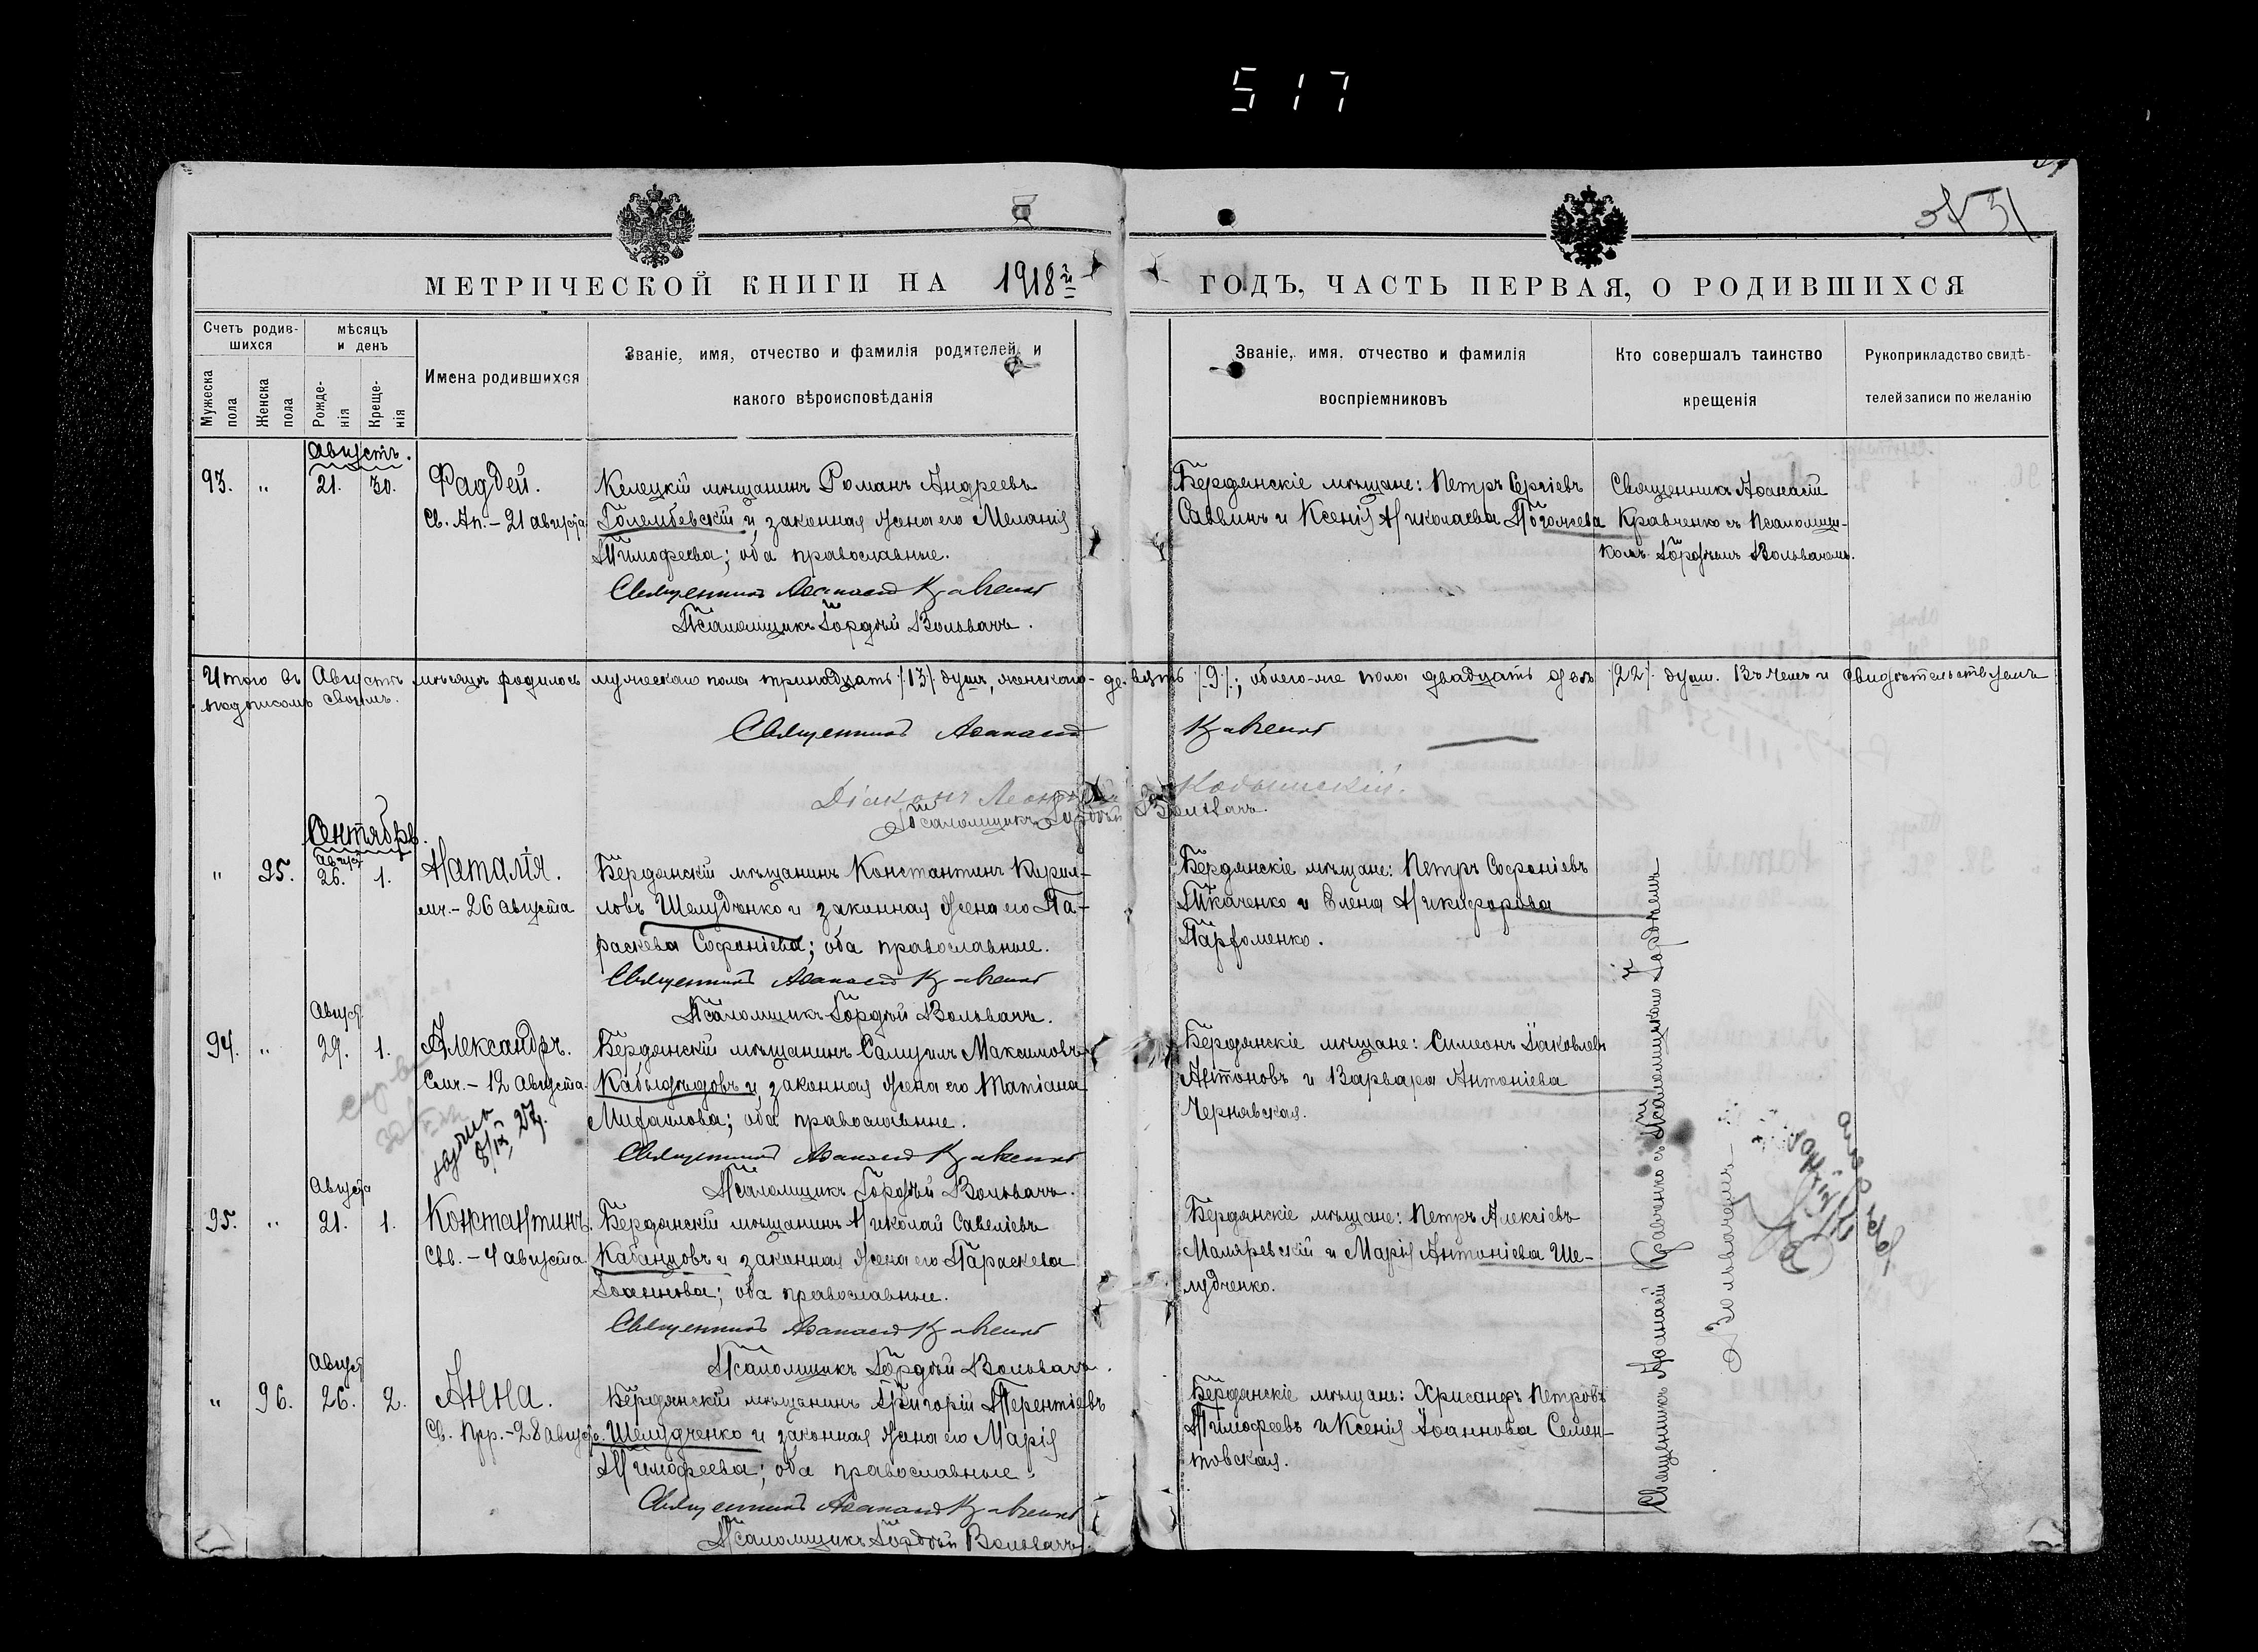 517
31
МЕТРИЧЕСКОЙ КНИГИ НА 1918 г. ГОДЪ, ЧАСТЬ ПЕРВАЯ, О РОДИВШИХСЯ
Счетъ родив-
шихся
Мужеска
пола
Женска
пола
мѣсяцъ
и день
Рожде-
нія
Креще-
нія
Имена родившихся
Званіе, имя, отчество и фамилія родителей, и
какого вѣроисповѣданія
Званіе, имя, отчество и фамилія
воспріемниковъ
Кто совершалъ таинство
крещенія
Рукоприкладство свидѣ-
телей записи по желанію
Августъ.
93. " 21. 30. Фаддей.
Св. Ап. - 21 августа
Келецкій мѣщанинъ Романъ Андреевъ
Голембевскій и законная жена его Меланія
Тимофеева; оба православные.
Священникъ Афанасій Кравченко
Псаломщикъ Гордѣй Вольвачъ.
Бердянскіе мѣщане: Петръ Сергіевъ
Саввинъ и Ксенія Николаева
Священникъ Афанасій
Кравченко съ Псаломщи-
комъ Гордѣемъ Вольвачемъ.
Итого въ Августѣ мѣсяцѣ родилось мужескаго пола тринадцать /13/ душъ, женскаго - девять /9/; обоего-же пола двадцать двѣ /22/ душ. Въ чемъ и свидѣтельствуемъ
подписомъ своимъ.
Священникъ Афанасій Кравченко
Діаконъ
Псаломщикъ Гордѣй Вольвачъ.
Сентябрь.
Август
" 95. 26. 1. Наталія.
мч. - 26 августа
Бердянскій мѣщанинъ Константинъ Кирил-
ловъ Шелудченко и законная жена его Па-
раскева Софоніева; оба православные.
Священникъ Афанасій Кравченко
Псаломщикъ Гордѣй Вольвачъ.
Бердянскіе мѣщане: Петръ Софоніевъ
Ткаченко и Елена Никифорова
Парфоменко.
Август
94. " 29. 1. Александръ.
Смч. - 12 августа.
27.
Бердянскій мѣщанинъ Самуилъ Максимовъ
и законная жена его Татіана
Михаилова; оба православные.
Священникъ Афанасій Кравченко
Псаломщикъ Гордѣй Вольвачъ.
Бердянскіе мѣщане: Симеонъ Іаковлевъ
Антоновъ и Варвара Антоніева
Чернявская.
Августа
95. " 21. 1. Константинъ.
Свв. - 4 августа
Бердянскій мѣщанинъ Николай Савеліевъ
Кабанцовъ и законная жена его Параскева
Іоаннова; оба православные.
Священникъ Афанасій Кравченко
Псаломщикъ Гордѣй Вольвачъ.
Бердянскіе мѣщане: Петръ Алексіевъ
Маляревскій и Марія Антоніева Ше-
лудченко.
Август
" 96. 26. 2. Анна.
Св. Прр. - 28 август.
Бердянскій мѣщанинъ Григорій Терентіевъ
Шелудченко и законная жена его Марія
Тимофеева; оба православные.
Священникъ Афанасій Кравченко
Псаломщикъ Гордѣй Вольвачъ.
Бердянскіе мѣщане: Хрисанфъ Петровъ
Тимофеевъ и Ксенія Іоаннова Семен-
товская.
Священникъ Афанасій Кравченко съ Псаломщикомъ Гордѣемъ
Вольвачемъ.